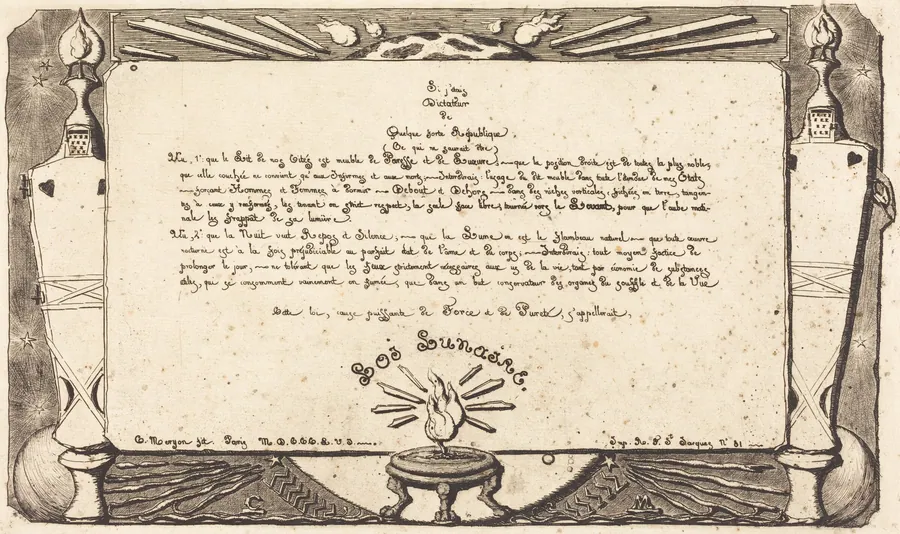 Si j'étais
Dictateur
De
Quelque forte République
(Ce qui ne saurait être)
Vu, 1° que le Lit de nos Cités est meuble de Paresse et de Luxure; que la position droite est de toutes la plus noble,
que celle couchée ne convient qu'aux Infirmes et aux morts; Interdirais: l'usage du dit meuble dans toute l'étendue de mes États
forçant Hommes et Femmes à dormir Debout et Dehors dans des niches verticales, fichées en terre,
à ceux y renfermés, les tenant en strict respect, la seule face libre, tournée vers le Levant, pour que l'aube mati-
nale les frappât de sa lumière.
Vu, 2° que la Nuit veut Repos et Silence; que la Lune en est le flambeau naturel que toute œuvre
nocturne est à la fois préjudiciable au parfait état de l'âme et du corps; Interdirais: tout moyen factice de
prolonger le jour, ne tolérant que les feux strictement nécessaires aux us de la vie, tant par économie de substances
utiles, qui se consomment vainement en fumée, que dans un but conservateur des organes du souffle et de la Vue
Cette loi, cause puissante de Force et de Pureté, s'appellerait,
Loi Lunaire.
C. Meryon fct. Paris M.D.C.C.C.L.V.I.
Imp. R. F. St Jacques N° 81